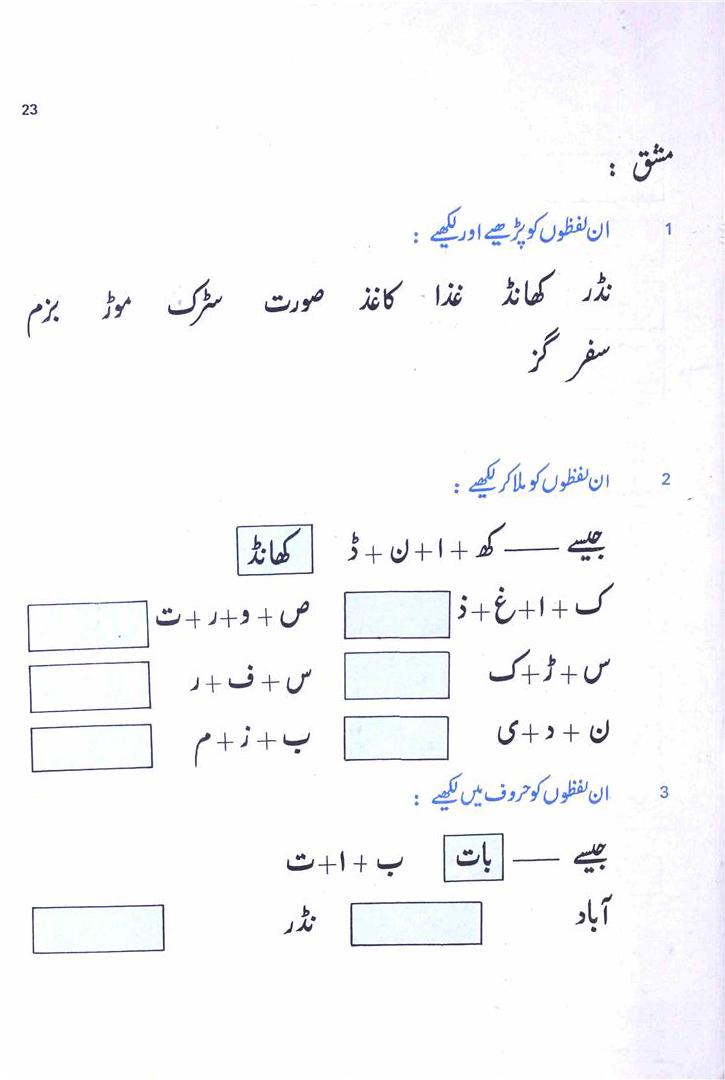 23
مشق :
1 ان لفظوں کو پڑھیے اور لکھیے :
نڈر کھانڈ غذا کاغذ صورت سڑک موڑ بزم
سفر گز
2 ان لفظوں کو ملا کر لکھیے :
جیسے —— کھ + ا + ن + ڈ کھانڈ
ک + ا + غ + ذ ص + و + ر + ت
س + ڑ + ک س + ف + ر
ن + د + ی ب + ز + م
3 ان لفظوں کو حروف میں لکھیے :
جیسے —— بات ب + ا + ت
آباد نڈر